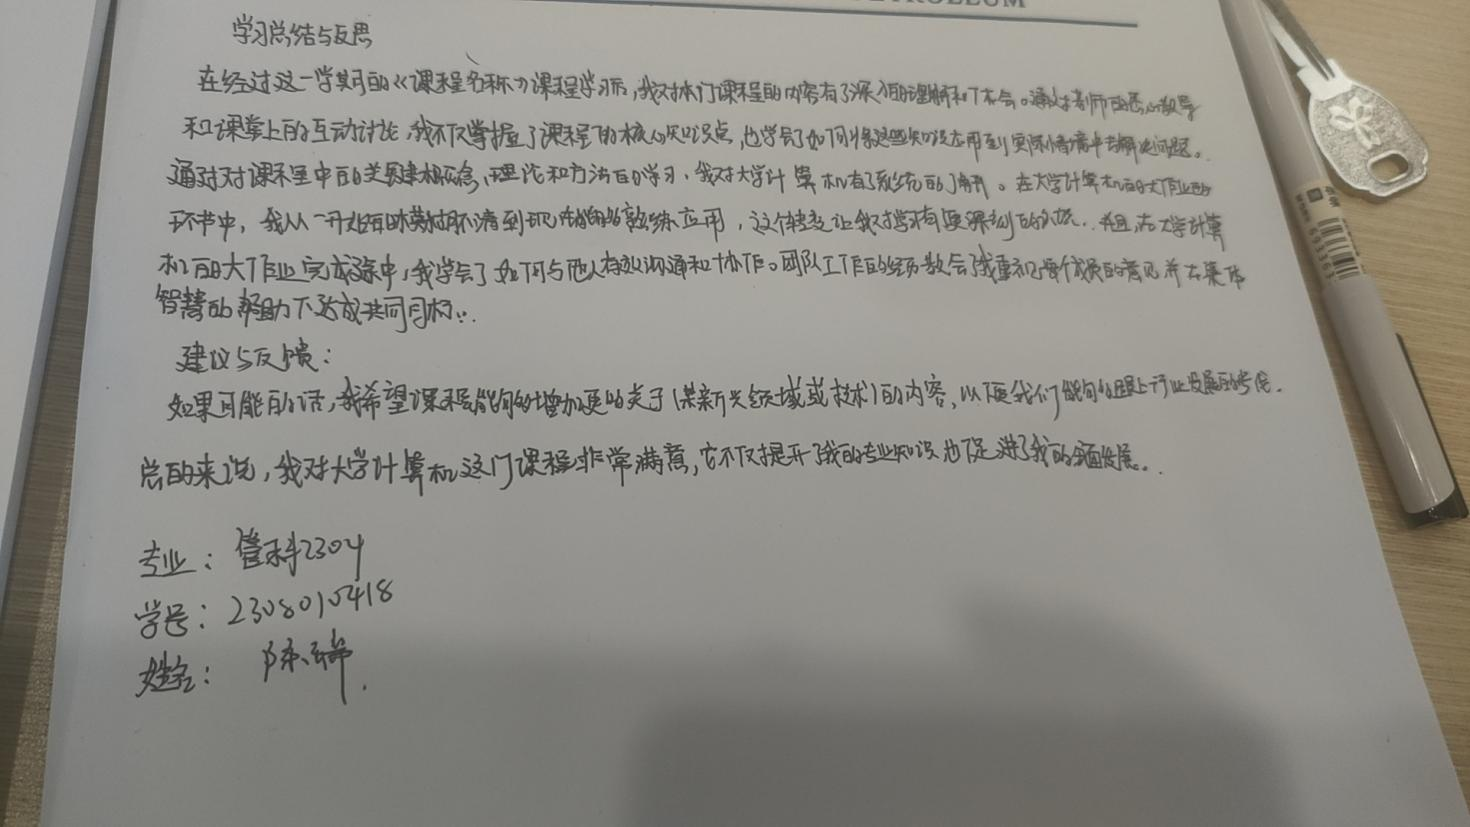 PETROLEUM
学习总结与反思
在经过这一学期的《课程名称》课程学习后,我对本门课程的内容有了深入的理解和体会。通过老师的悉心教导
和课堂上的互动讨论,我不仅掌握了课程的核心知识点,也学会了如何将这些知识应用到实际情境中去解决问题。
通过对课程中的关键概念、理论和方法的学习,我对大学计算机有了系统的了解。在大学计算机的大作业的
环节中,我从一开始的模糊不清到现在的熟练应用,这个转变让我对学习有更深刻的认识。并且,在大学计算
机的大作业完成过程中,我学会了如何与他人有效沟通和协作。团队工作的经历教会了我重视每个成员的意见并在集体
智慧的帮助下达成共同目标。
建议与反馈:
如果可能的话,我希望课程能够增加更多关于(某新兴领域或技术)的内容,以便我们能够跟上行业发展的步伐.
总的来说,我对大学计算机这门课程非常满意,它不仅提升了我的专业知识也促进了我的全面发展.
专业:管科2304
学号:2308010418
姓名:陈祥
693363